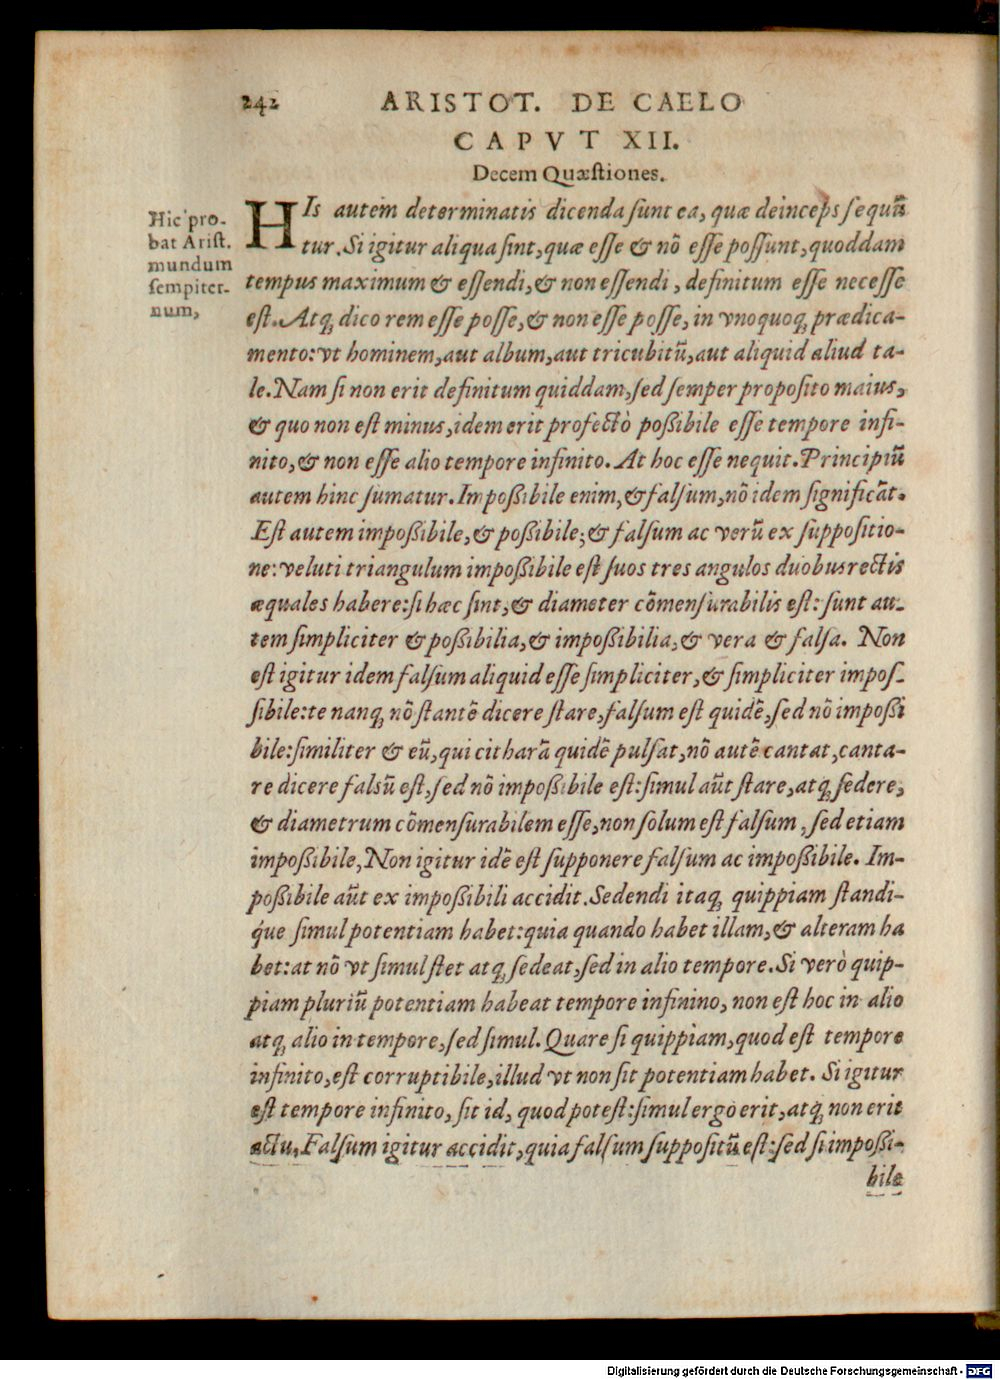 242 ARISTOT. DE CAELO
CAPVT XII.
Decem Quæstiones.
Hic pro-
bat Arist.
mundum
sempiter-
num,
HIs autem determinatis dicenda sunt ea, quæ deinceps sequũ
tur. Si igitur aliqua sint, quæ esse & nõ esse possunt, quoddam
tempus maximum & essendi, & non essendi, definitum esse necesse
est. Atq; dico rem esse posse, & non esse posse, in vnoquoq; prædica-
mento: vt hominem, aut album, aut tricubitũ, aut aliquid aliud ta-
le. Nam si non erit definitum quiddam, sed semper proposito maius,
& quo non est minus, idem erit profectò poßibile esse tempore infi-
nito, & non esse alio tempore infinito. At hoc esse nequit. Principiũ
autem hinc sumatur. Impoßibile enim, & falsum, nõ idem significãt.
Est autem impoßibile, & poßibile; & falsum ac verũ ex suppositio-
ne: veluti triangulum impoßibile est suos tres angulos duobus rectis
æquales habere: si hæc sint, & diameter cõmensurabilis est: sunt au-
tem simpliciter & poßibilia, & impoßibilia, & vera & falsa. Non
est igitur idem falsum aliquid esse simpliciter, & simpliciter impos-
sibile: te nanq; nõ stantẽ dicere stare, falsum est quidẽ, sed nõ impoßi
bile: similiter & eũ, qui citharã quidẽ pulsat, nõ autẽ cantat, canta-
re dicere falsũ est, sed nõ impoßibile est: simul aũt stare, atq; sedere,
& diametrum cõmensurabilem esse, non solum est falsum, sed etiam
impoßibile, Non igitur idẽ est supponere falsum ac impoßibile. Im-
poßibile aũt ex impoßibili accidit. Sedendi itaq; quippiam standi-
q́ue simul potentiam habet: quia quando habet illam, & alteram ha
bet: at nõ vt simul stet atq; sedeat, sed in alio tempore. Si verò quip-
piam pluriũ potentiam habeat tempore infinino, non est hoc in alio
atq; alio in tempore, sed simul. Quare si quippiam, quod est tempore
infinito, est corruptibile, illud vt non sit potentiam habet. Si igitur
est tempore infinito, sit id, quod potest: simul ergo erit, atq; non erit
actu, Falsum igitur accidit, quia falsum suppositũ est: sed si impoßi-
bile
Digitalisierung gefördert durch die Deutsche Forschungsgemeinschaft - DFG